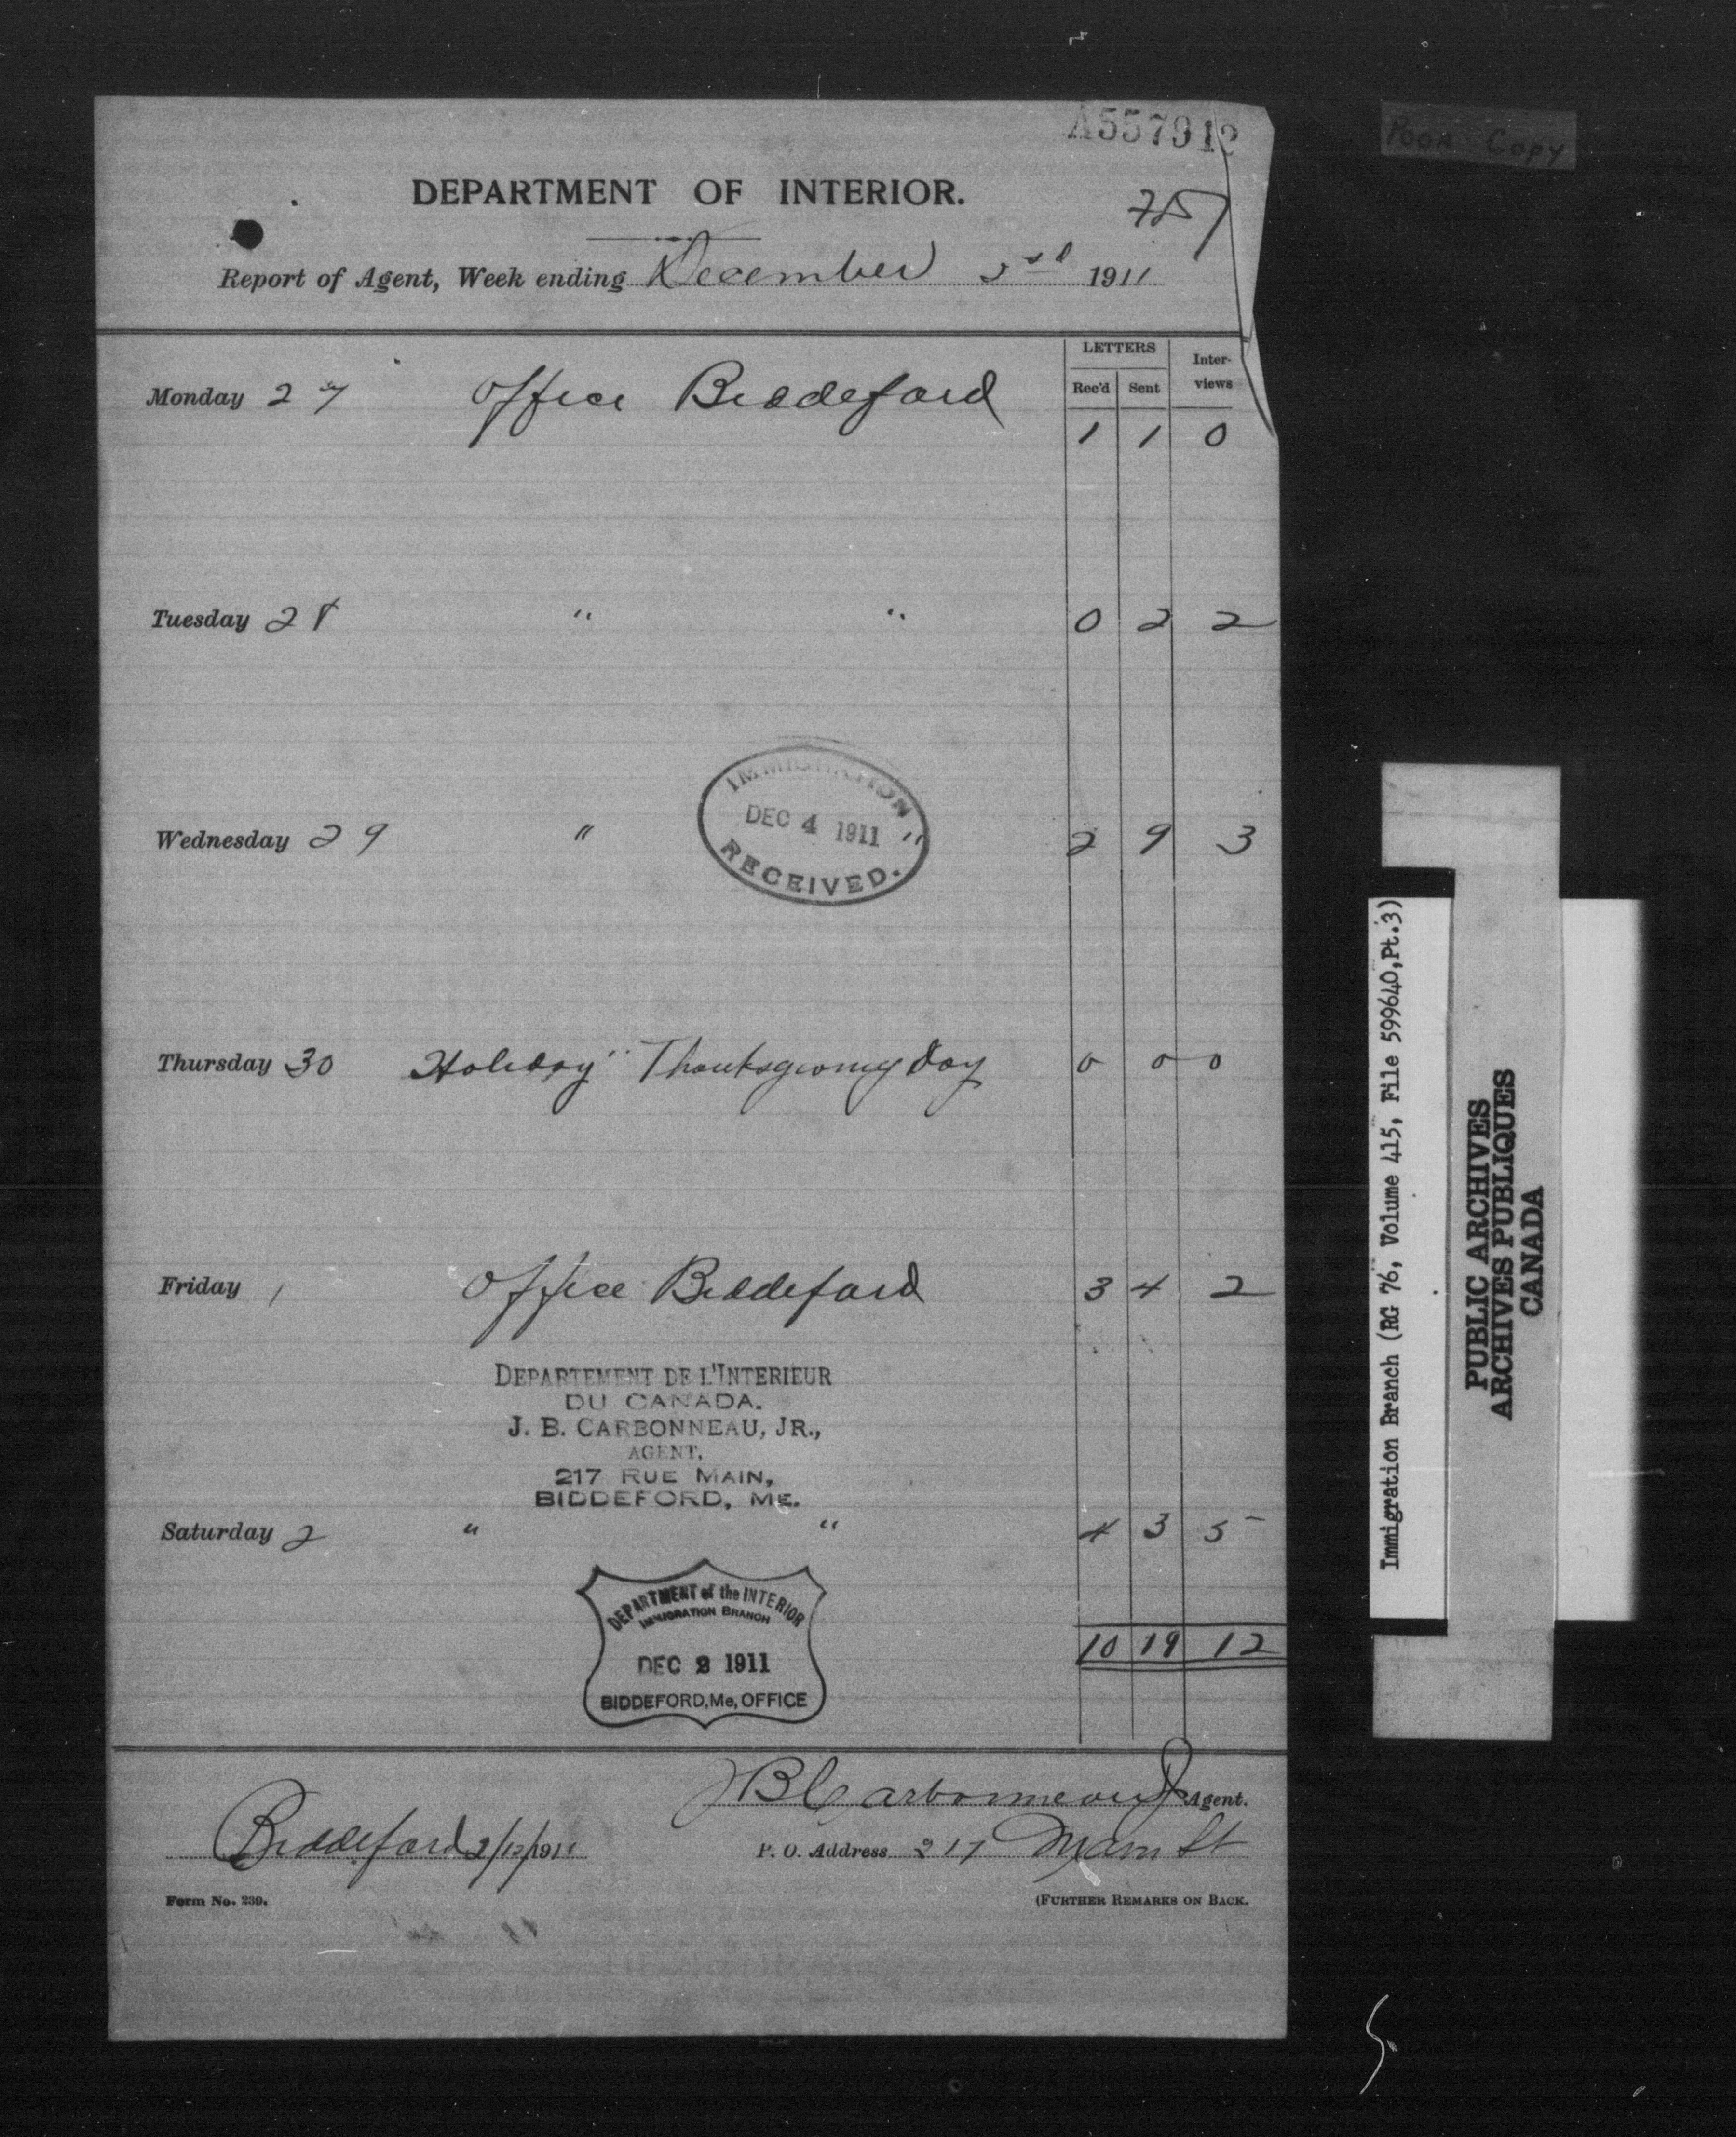 A557912
Poor Copy
DEPARTMENT OF INTERIOR.
Report of Agent, Week ending December 1911
LETTERS
Inter-
views
Rec'd Sent
Monday 27 Office Biddeford
1 1 0
Tuesday 28 " " 0 2 2
IMMIGRATION
DEC 4 1911
RECEIVED.
Wednesday 29 " " 2 9 3
Thursday 30 Holiday " Thanksgiving Day 0 0 0
Friday 1 Office Biddeford 3 4 2
DEPARTEMENT DE L'INTERIEUR
DU CANADA.
J. B. CARBONNEAU, JR.,
AGENT,
217 RUE MAIN,
BIDDEFORD, ME.
Saturday 2 " " 4 3 5
DEPARTMENT of the INTERIOR
IMMIGRATION BRANCH
DEC 2 1911
BIDDEFORD, Me, OFFICE
10 19 12
JB Carbonneau Jr Agent.
Biddeford 2/12/1911 P. O. Address 217 Main St
Form No. 239. (FURTHER REMARKS ON BACK.
Immigration Branch (RG 76, Volume 415, File 599640,Pt.3)
PUBLIC ARCHIVES
ARCHIVES PUBLIQUES
CANADA